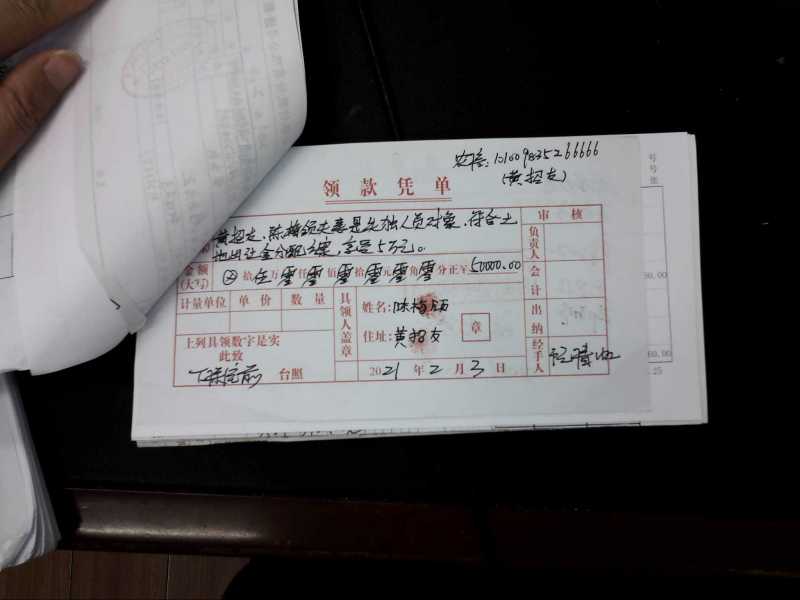 农信:10100983526 6666
(黄招友)
领款凭单
黄招友、陈梅领夫妻是失独人员对象,符合土
地出让金分配方案,享受5万元。
审核
金额(大写) ⊗ 拾 伍 万 零 仟 零 佰 零 拾 零 元 零 角 零 分正 ¥50000.00
负责人
计量单位 单价 数量
会计
具领人盖章
姓名:陈梅领
住址:黄招友
章
出纳
上列具领数字是实
此致
台照
2021年2月3日
经手人
号
号
张